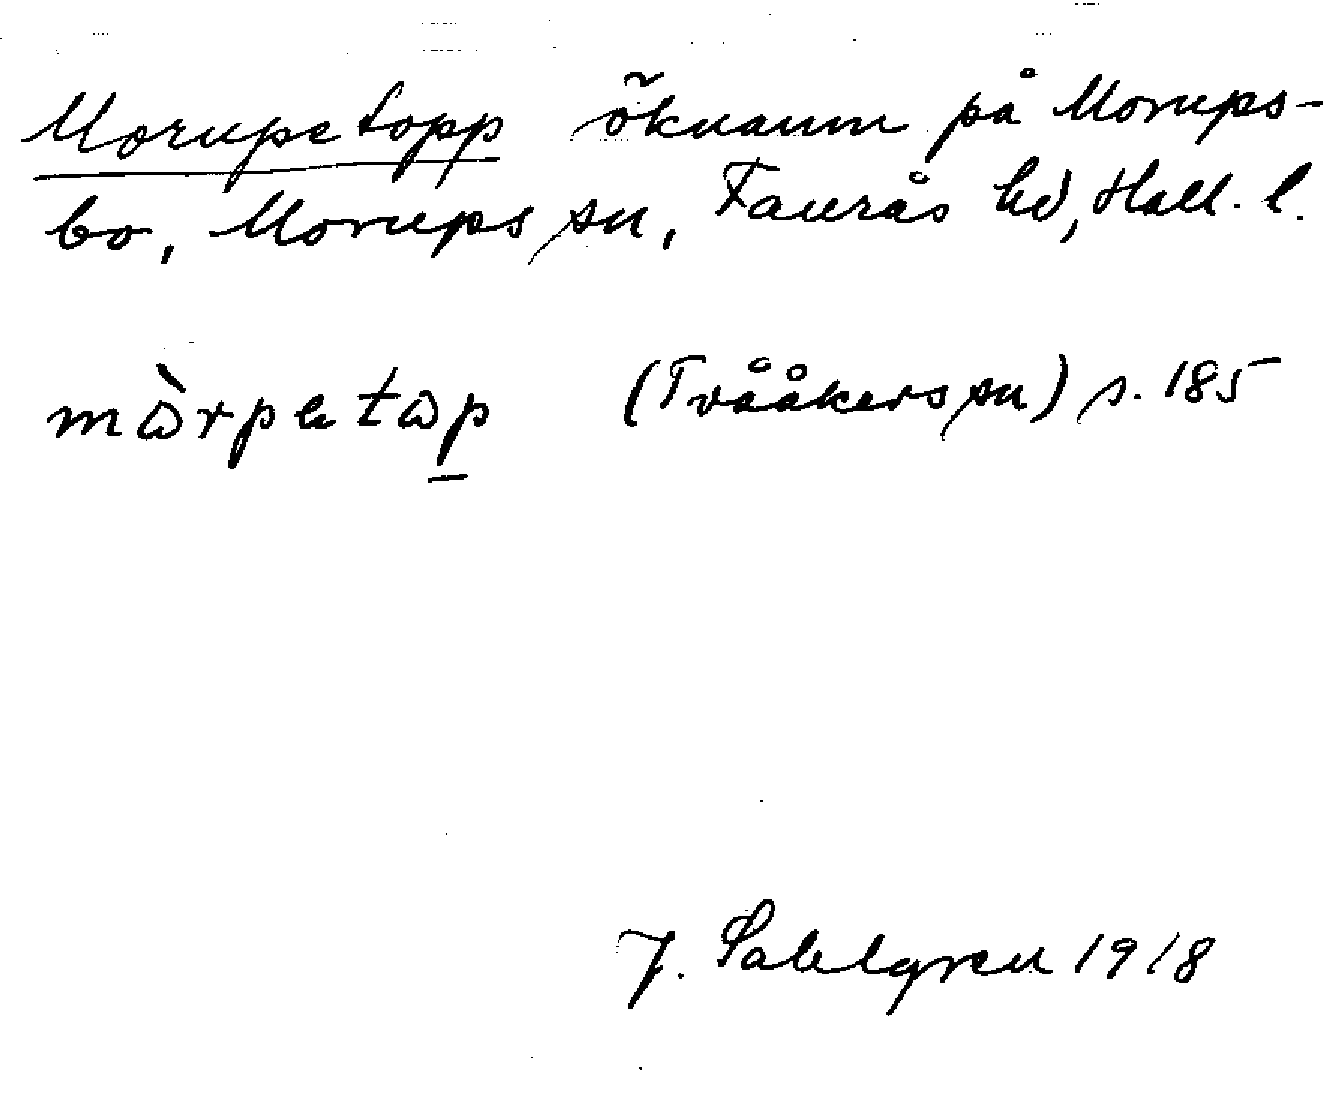 Morupetopp öknamn på Morups-
bo, Morups sn, Faurås hd, Hall. l.
mὼrpetωp (Tvååkers sn) s. 185
J. Sahlgren 1918